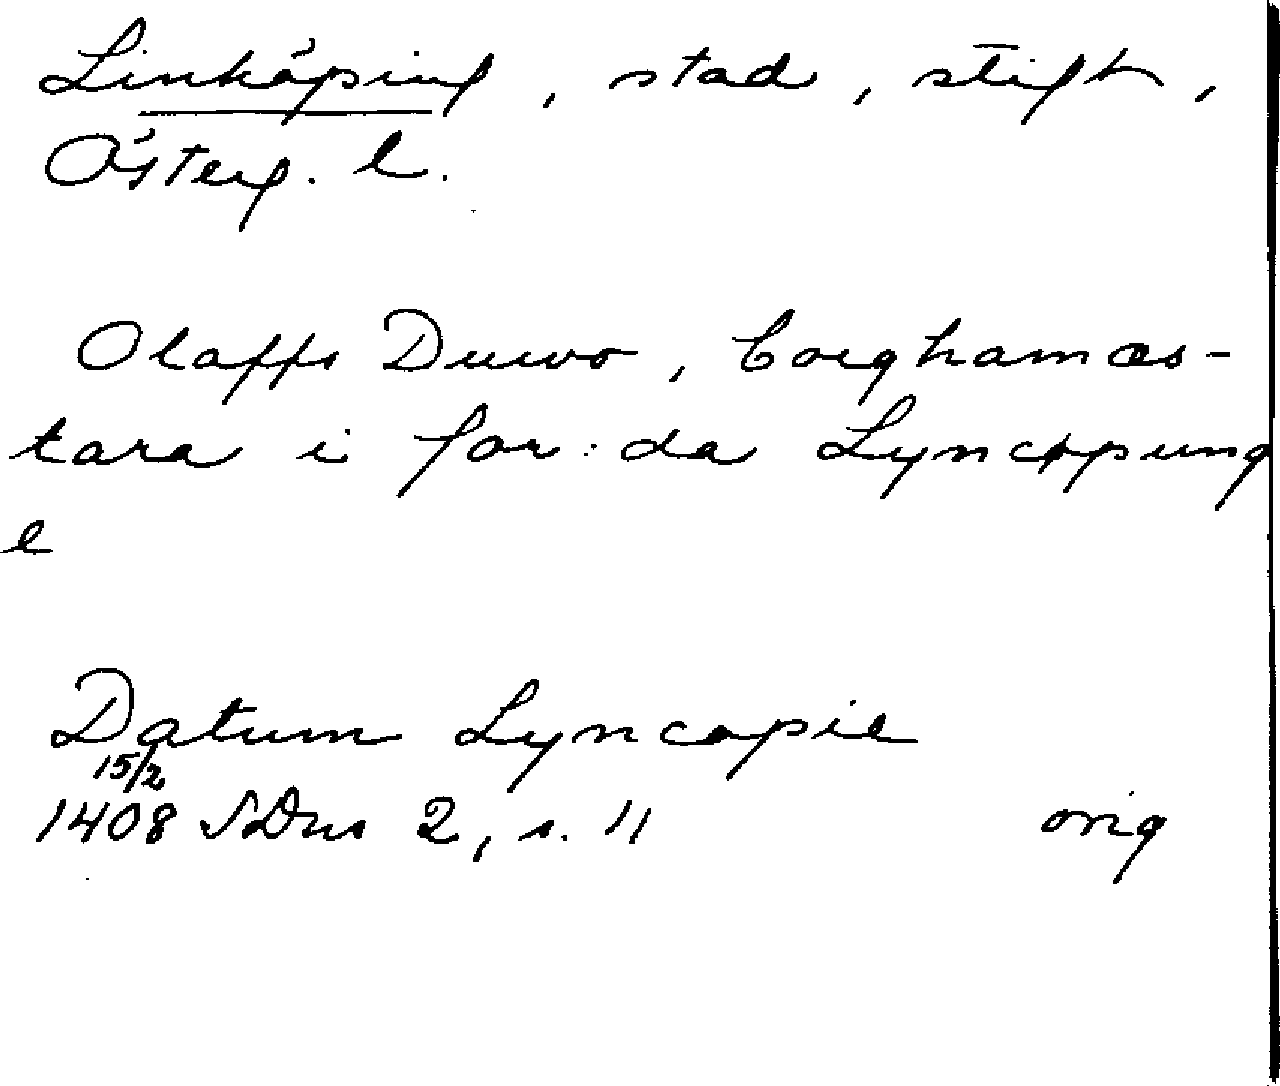 Linköping, stad, stift,
Österg. l.
Olaffs Duwo, borghamæs-
tara i for:da Lyncøpung
e
Datum Lyncopie
15/2
1408 SDns 2, s. 11 orig